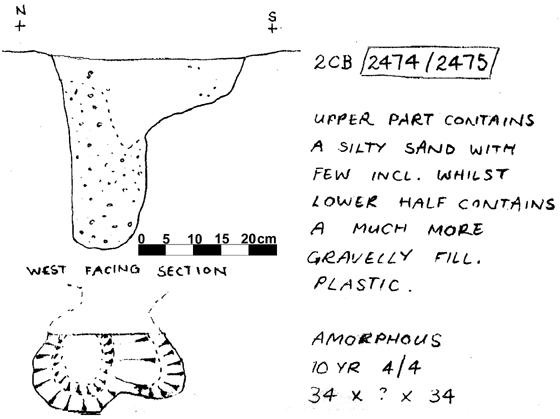 N
S
2CB 2474/2475
UPPER PART CONTAINS
A SILTY SAND WITH
FEW INCL. WHILST
LOWER HALF CONTAINS
A MUCH MORE
GRAVELLY FILL.
PLASTIC.
0 5 10 15 20cm
WEST FACING SECTION
AMORPHOUS
10 YR 4/4
34 x ? x 34